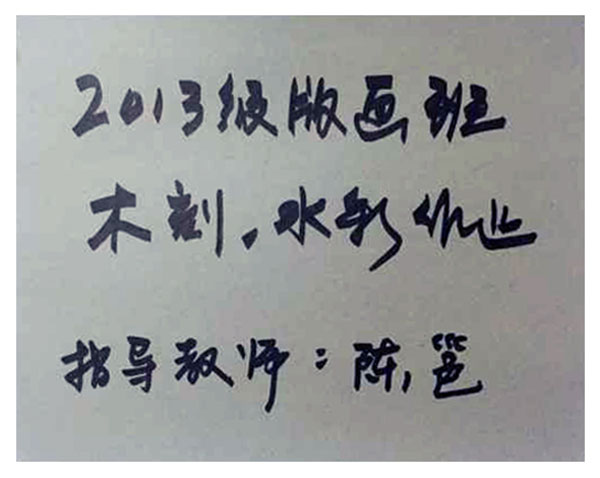 2013级版画班
木刻、水彩作业
指导教师：陈邕